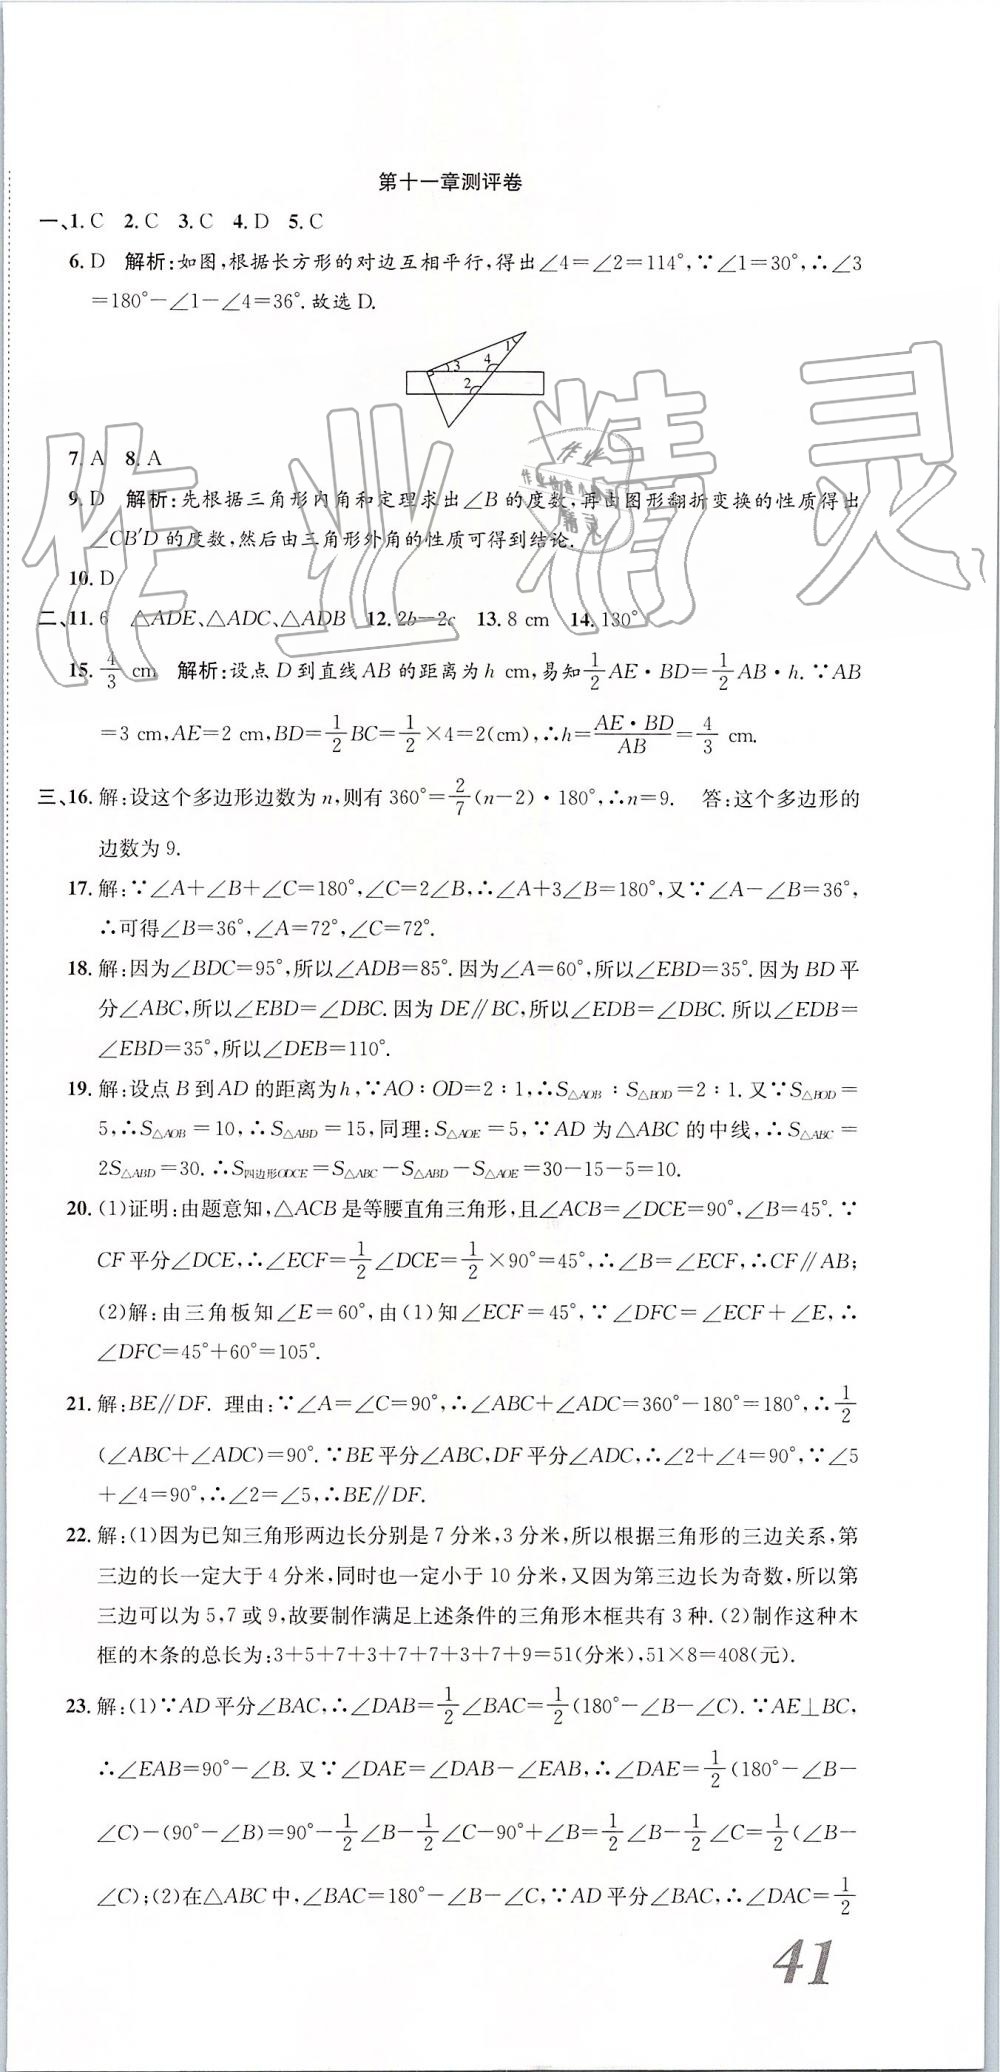 第十一章测评卷
一、1. C 2. C 3. C 4. D 5. C
6. D 解析:如图,根据长方形的对边互相平行,得出∠4=∠2=114°,∵∠1=30°,∴∠3
=180°-∠1-∠4=36°.故选D.
1
3
4
2
7. A 8. A
9. D 解析:先根据三角形内角和定理求出∠B的度数,再由图形翻折变换的性质得出
∠CB′D的度数,然后由三角形外角的性质可得到结论.
10. D
二、11. 6 △ADE、△ADC、△ADB 12. 2b-2c 13. 8 cm 14. 130°
15. 4/3 cm 解析:设点D到直线AB的距离为h cm,易知1/2 AE·BD=1/2 AB·h.∵AB
=3 cm,AE=2 cm,BD=1/2 BC=1/2×4=2(cm),∴h=AE·BD/AB=4/3 cm.
三、16. 解:设这个多边形边数为n,则有360°=2/7(n-2)·180°,∴n=9. 答:这个多边形的
边数为9.
17. 解:∵∠A+∠B+∠C=180°,∠C=2∠B,∴∠A+3∠B=180°,又∵∠A-∠B=36°,
∴可得∠B=36°,∠A=72°,∠C=72°.
18. 解:因为∠BDC=95°,所以∠ADB=85°.因为∠A=60°,所以∠EBD=35°.因为BD平
分∠ABC,所以∠EBD=∠DBC.因为DE∥BC,所以∠EDB=∠DBC.所以∠EDB=
∠EBD=35°,所以∠DEB=110°.
19. 解:设点B到AD的距离为h,∵AO:OD=2:1,∴S△AOB:S△BOD=2:1.又∵S△BOD=
5,∴S△AOB=10,∴S△ABD=15,同理:S△AOE=5,∵AD为△ABC的中线,∴S△ABC=
2S△ABD=30.∴S四边形ODCE=S△ABC-S△ABD-S△AOE=30-15-5=10.
20. (1)证明:由题意知,△ACB是等腰直角三角形,且∠ACB=∠DCE=90°,∠B=45°.∵
CF平分∠DCE,∴∠ECF=1/2∠DCE=1/2×90°=45°,∴∠B=∠ECF,∴CF∥AB;
(2)解:由三角板知∠E=60°,由(1)知∠ECF=45°,∵∠DFC=∠ECF+∠E,∴
∠DFC=45°+60°=105°.
21. 解:BE∥DF. 理由:∵∠A=∠C=90°,∴∠ABC+∠ADC=360°-180°=180°,∴1/2
(∠ABC+∠ADC)=90°.∵BE平分∠ABC,DF平分∠ADC,∴∠2+∠4=90°,∵∠5
+∠4=90°,∴∠2=∠5,∴BE∥DF.
22. 解:(1)因为已知三角形两边长分别是7分米,3分米,所以根据三角形的三边关系,第
三边的长一定大于4分米,同时也一定小于10分米,又因为第三边长为奇数,所以第
三边可以为5,7或9,故要制作满足上述条件的三角形木框共有3种.(2)制作这种木
框的木条的总长为:3+5+7+3+7+7+3+7+9=51(分米),51×8=408(元).
23. 解:(1)∵AD平分∠BAC,∴∠DAB=1/2∠BAC=1/2(180°-∠B-∠C).∵AE⊥BC,
∴∠EAB=90°-∠B.又∵∠DAE=∠DAB-∠EAB,∴∠DAE=1/2(180°-∠B-
∠C)-(90°-∠B)=90°-1/2∠B-1/2∠C-90°+∠B=1/2∠B-1/2∠C=1/2(∠B-
∠C);(2)在△ABC中,∠BAC=180°-∠B-∠C,∵AD平分∠BAC,∴∠DAC=1/2
41
作业精灵